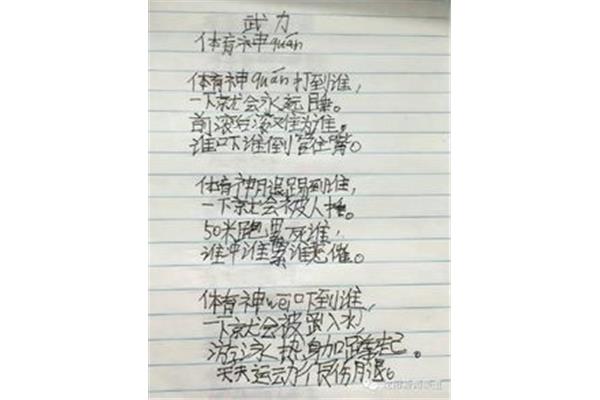 武力
体育神quán
体育神quán打到谁，
一下就会永远睡。
前滚后滚难为谁。
谁吓谁倒管住嘴。
体育神腿踢到谁，
一下就会被人捶。
50米跑累死谁，
谁中谁累谁悲催。
体育神wěi吓到谁，
一下就会被入水，
游泳热身加蹲起。
天天运动很伤腿。